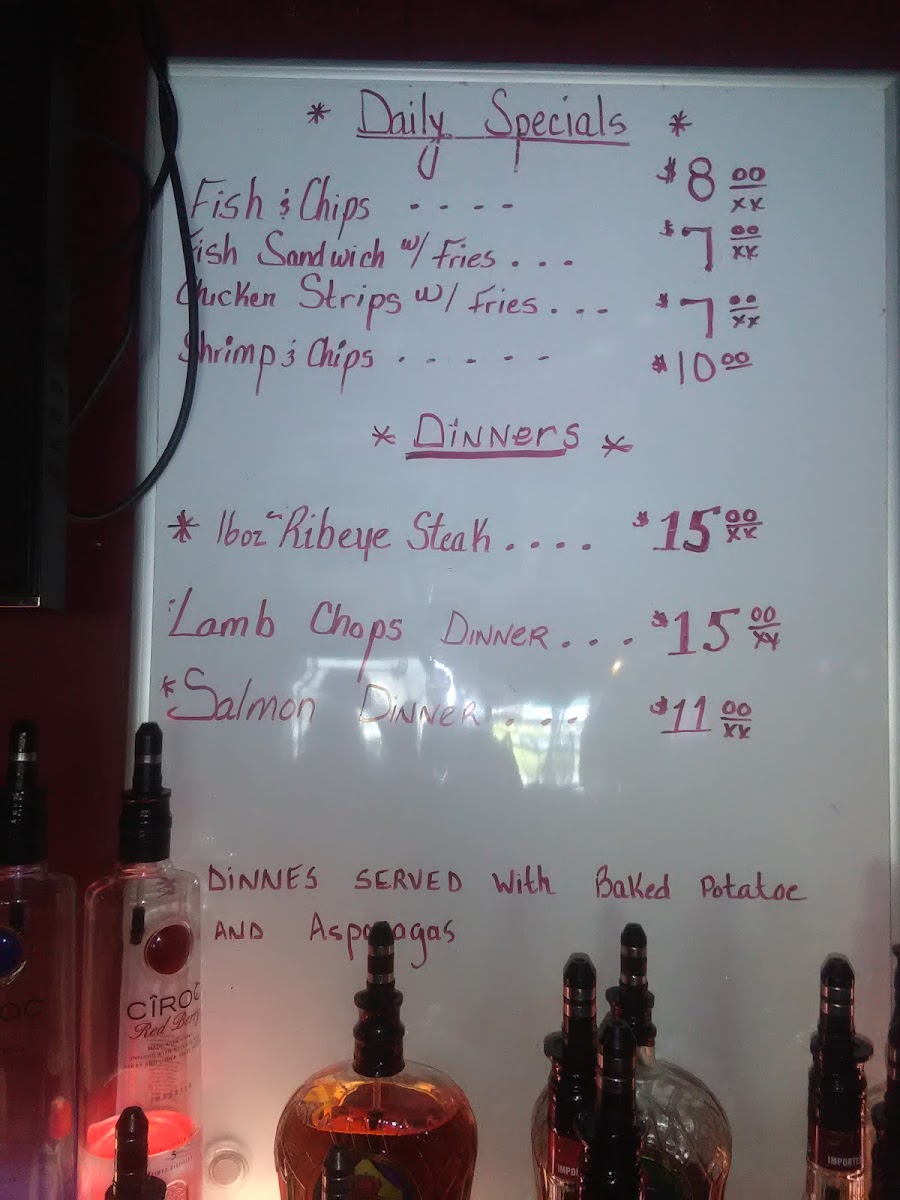 * Daily Specials *
Fish & Chips .... $8 00/xx
Fish Sandwich w/ Fries ... $7 00/xx
Chicken Strips w/ Fries ... $7 00/xx
Shrimp & Chips ..... $10 00
* DiNNers *
* 16oz Ribeye Steak .... $15 00/xx
Lamb Chops DINNER ... $15 00/xx
*Salmon DINNER .... $11 00/xx
DiNNES SERVED With Baked Potatoe
AND Asparagas
CÎROC
Red Berry
IMPORTED